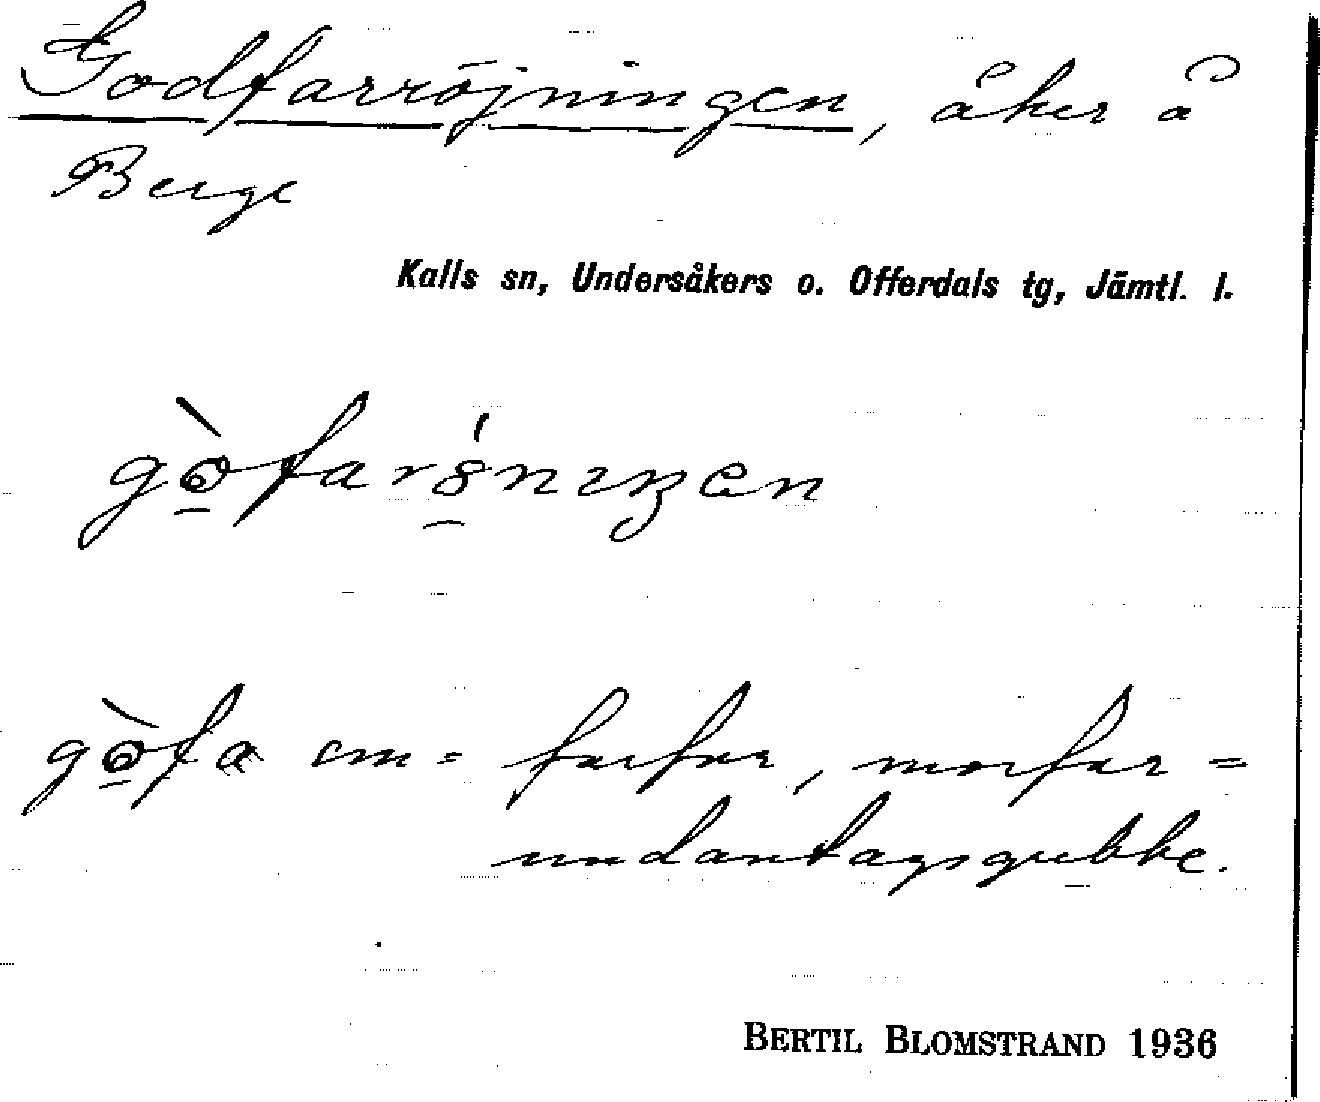 Godfarröjningen, åker å
Berge
Kalls sn, Undersåkers o. Offerdals tg, Jämtl. l.
gò̠farö̠́nıŋen
gò̠fa em = farfar, morfar =
undantagsgubbe.
BERTIL BLOMSTRAND 1936